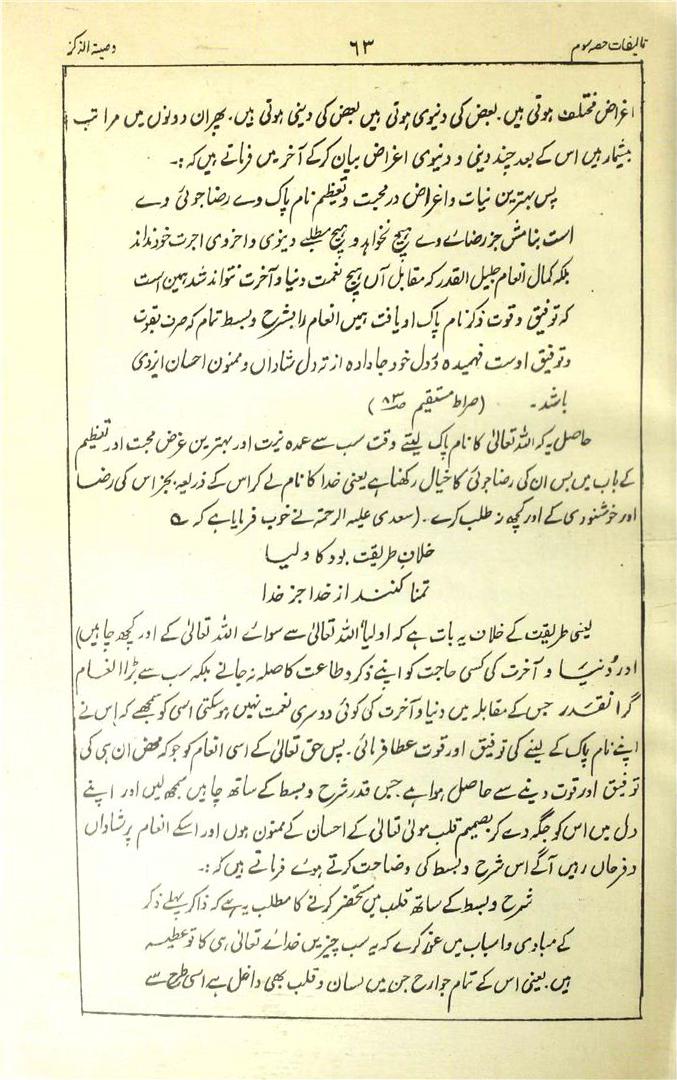 تالیفات حصہ سوم ۶۳ وصیۃ الذکر
اغراض مختلف ہوتی ہیں۔ بعض کی دنیوی ہوتی ہیں بعض کی دینی ہوتی ہیں۔ پھر ان دونوں میں مراتب
بیشمار ہیں اس کے بعد چند دینی و دنیوی اغراض بیان کر کے آخر میں فرماتے ہیں کہ:۔
پس بہترین نیات و اغراض در محبت و تعظیم نام پاک وے رضا جوئی وے
است بنامش جز رضائے وے ہیچ نخواہد و ہیچ مطلبے دینوی و اخروی اجرت خود نداند
بلکہ کمال انعام جلیل القدر کہ مقابل آں ہیچ نعمت دنیا و آخرت نتواند شد ہمین است
کہ توفیق و قوت ذکر نام پاک او یافت ہمیں انعام را بشرح و بسط تمام کہ صرف بقوت
و توفیق اوست فہمیدہ بدل خود جا دادہ از تہ دل شاداں و ممنون احسان ایزدی
باشد۔ (صراط مستقیم ص۸۳)
حاصل یہ کہ اللہ تعالیٰ کا نام پاک لیتے وقت سب سے عمدہ نیت اور بہترین غرض محبت اور تعظیم
کے باب میں بس ان کی رضا جوئی کا خیال رکھنا ہے یعنی خدا کا نام لے کر اس کے ذریعہ بجز اس کی رضا
اور خوشنودی کے اور کچھ نہ طلب کرے۔ (سعدی علیہ الرحمۃ نے خوب فرمایا ہے کہ ؎
خلاف طریقت بود کاولیا
تمنا کنند از خدا جز خدا
یعنی طریقت کے خلاف یہ بات ہے کہ اولیاء اللہ تعالیٰ سے سوائے اللہ تعالیٰ کے اور کچھ چاہیں)
اور دُنیا و آخرت کی کسی حاجت کو اپنے ذکر و طاعت کا صلہ نہ جانے بلکہ سب سے بڑا انعام
گرانقدر جس کے مقابلہ میں دنیا و آخرت کی کوئی دوسری نعمت نہیں ہو سکتی اسی کو سمجھے کہ اس نے
اپنے نام پاک کے لینے کی توفیق اور قوت عطا فرمائی۔ پس حق تعالیٰ کے اسی انعام کو جو کہ محض ان ہی کی
توفیق اور قوت دینے سے حاصل ہوا ہے۔ جس قدر شرح و بسط کے ساتھ چاہیں سمجھ لیں اور اپنے
دل میں اس کو جگہ دے کر بصمیم قلب مولیٰ تعالیٰ کے احسان کے ممنون ہوں اور اسکے انعام پر شاداں
و فرحاں رہیں آگے اس شرح و بسط کی وضاحت کرتے ہوئے فرماتے ہیں کہ:۔
شرح و بسط کے ساتھ قلب میں مستحضر کرنے کا مطلب یہ ہے کہ ذاکر پہلے ذکر
کے مبادی و اسباب میں غور کرے کہ یہ سب چیزیں خدائے تعالیٰ ہی کا تو عطیہ
ہیں۔ یعنی اس کے تمام جوارح جن میں لسان و قلب بھی داخل ہے اسی طرح سے